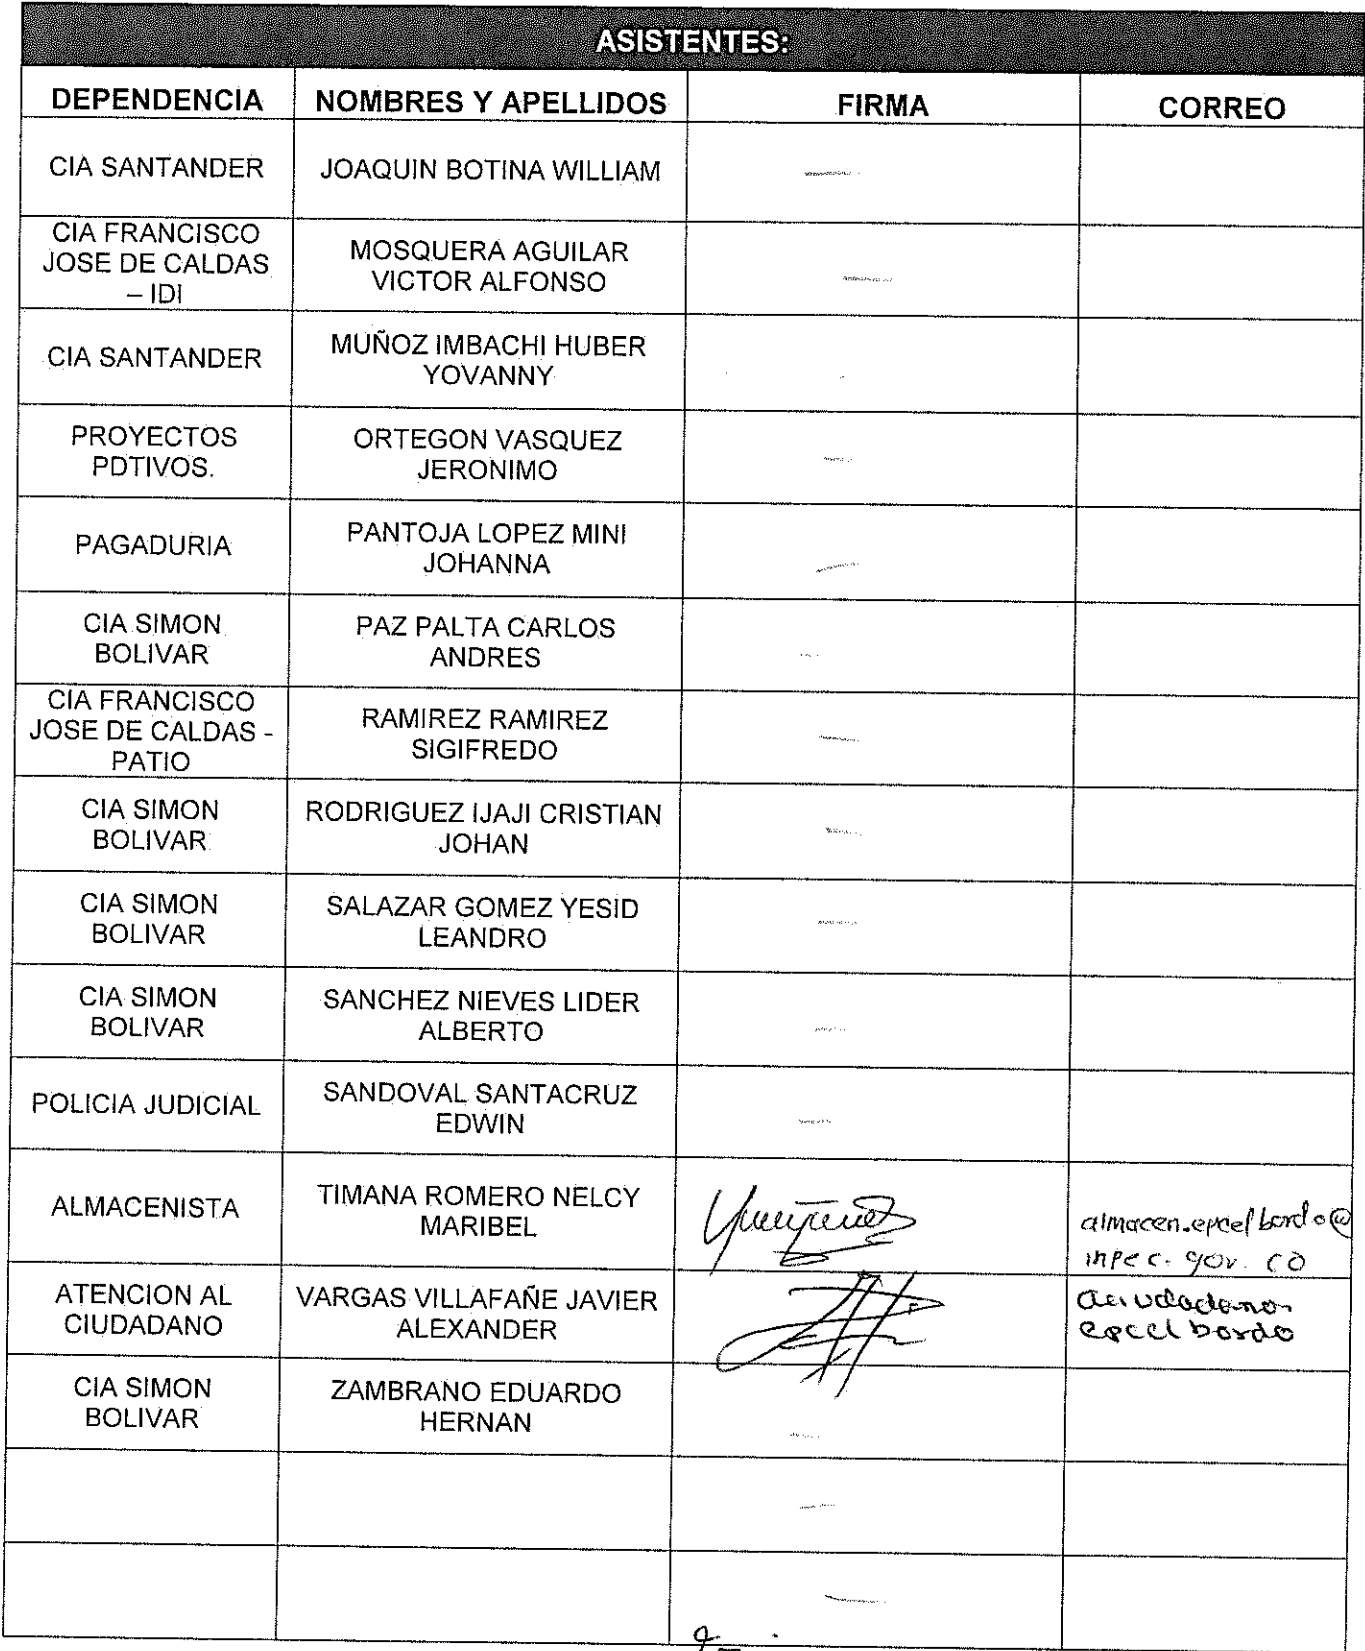 ASISTENTES:
DEPENDENCIA NOMBRES Y APELLIDOS FIRMA CORREO
CIA SANTANDER JOAQUIN BOTINA WILLIAM
CIA FRANCISCO
JOSE DE CALDAS
– IDI
MOSQUERA AGUILAR
VICTOR ALFONSO
CIA SANTANDER
MUÑOZ IMBACHI HUBER
YOVANNY
PROYECTOS
PDTIVOS.
ORTEGON VASQUEZ
JERONIMO
PAGADURIA
PANTOJA LOPEZ MINI
JOHANNA
CIA SIMON
BOLIVAR
PAZ PALTA CARLOS
ANDRES
CIA FRANCISCO
JOSE DE CALDAS -
PATIO
RAMIREZ RAMIREZ
SIGIFREDO
CIA SIMON
BOLIVAR
RODRIGUEZ IJAJI CRISTIAN
JOHAN
CIA SIMON
BOLIVAR
SALAZAR GOMEZ YESID
LEANDRO
CIA SIMON
BOLIVAR
SANCHEZ NIEVES LIDER
ALBERTO
POLICIA JUDICIAL
SANDOVAL SANTACRUZ
EDWIN
ALMACENISTA
TIMANA ROMERO NELCY
MARIBEL
almacen.epcelbordo@
inpec.gov.co
ATENCION AL
CIUDADANO
VARGAS VILLAFAÑE JAVIER
ALEXANDER
epcelbordo
CIA SIMON
BOLIVAR
ZAMBRANO EDUARDO
HERNAN